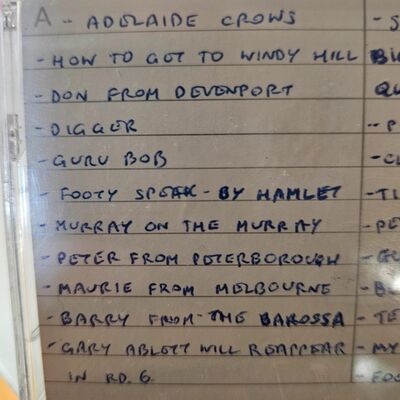 A -- ADELAIDE CROWS
- HOW TO GET TO WINDY HILL
- DON FROM DEVENPORT
- DIGGER
- GURU BOB
- FOOTY SPEAK - BY HAMLET
- MURRAY ON THE MURRAY
- PETER FROM PETERBOROUGH
- MAURIE FROM MELBOURNE
- BARRY FROM THE BAROSSA
- GARY ABLETT WILL REAPPEAR
IN RD. 6.